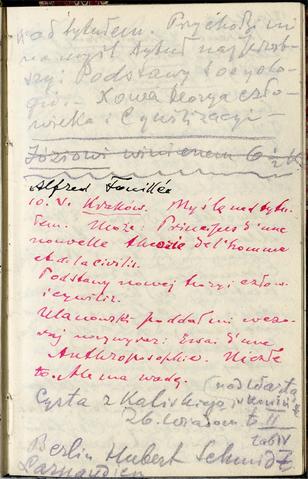 nad tytułem. Przychodzi mi
na myśl tytuł najlepszy:
Podstawy Socyologii.
– Nowa teorya człowieka
i Cywilizacyi –
Józiowi winienem 6 ½ K
Alfred Fouillée
10. V. Kraków. Myślę nad tytułem.
Może: Principes d'une
nouvelle théorie de l'homme
et de la civilis.
Podstawy nowej teoryi człow.
i cywiliz.
Ulanowski poddał mi wczoraj
Essai d'une
Anthroposophie. Nieźle
to. Ale ma wadę.
nad Wartą
Cysta z Kaliskiego
26. wiadom.
Berlin Hubert Schmidt